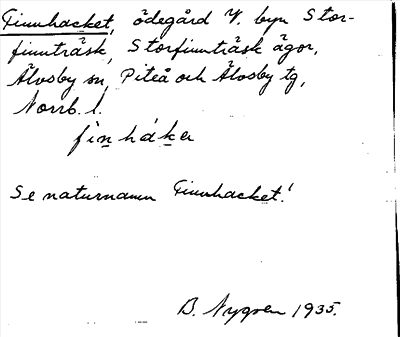 Finnhacket, ödegård V. byn Stor-
finnträsk, Storfinnträsk ägor,
Älvsby sn, Piteå och Älvsby tg,
Norrb. l.
fìnháka
Se naturnamn Finnhacket!
B. Nygren 1935.